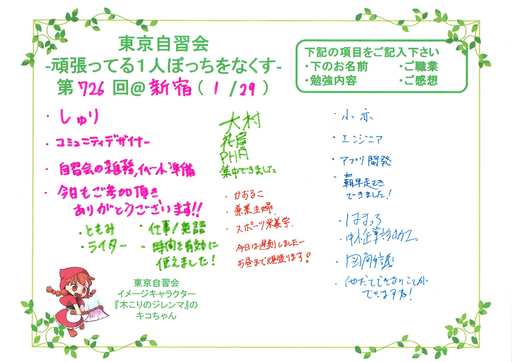 東京自習会
-頑張ってる1人ぼっちをなくす-
第726回@新宿(1/29)
下記の項目をご記入下さい
・下のお名前
・ご職業
・勉強内容
・ご感想
・しゅり
・コミュニティデザイナー
・自習会の雑務、イベント準備
・今日もご参加頂き
ありがとうございます!!
・ともみ
・ライター
・仕事/英語
・時間を有効に
使えました!
大村
PHP
集中できました
・かおるこ
・専業主婦
・スポーツ栄養学
今日は遅刻しましたー
お昼まで頑張ります!
・小赤
・エンジニア
・アプリ開発
・
できました!
・
・
・
東京自習会
イメージキャラクター
『木こりのジレンマ』の
キコちゃん